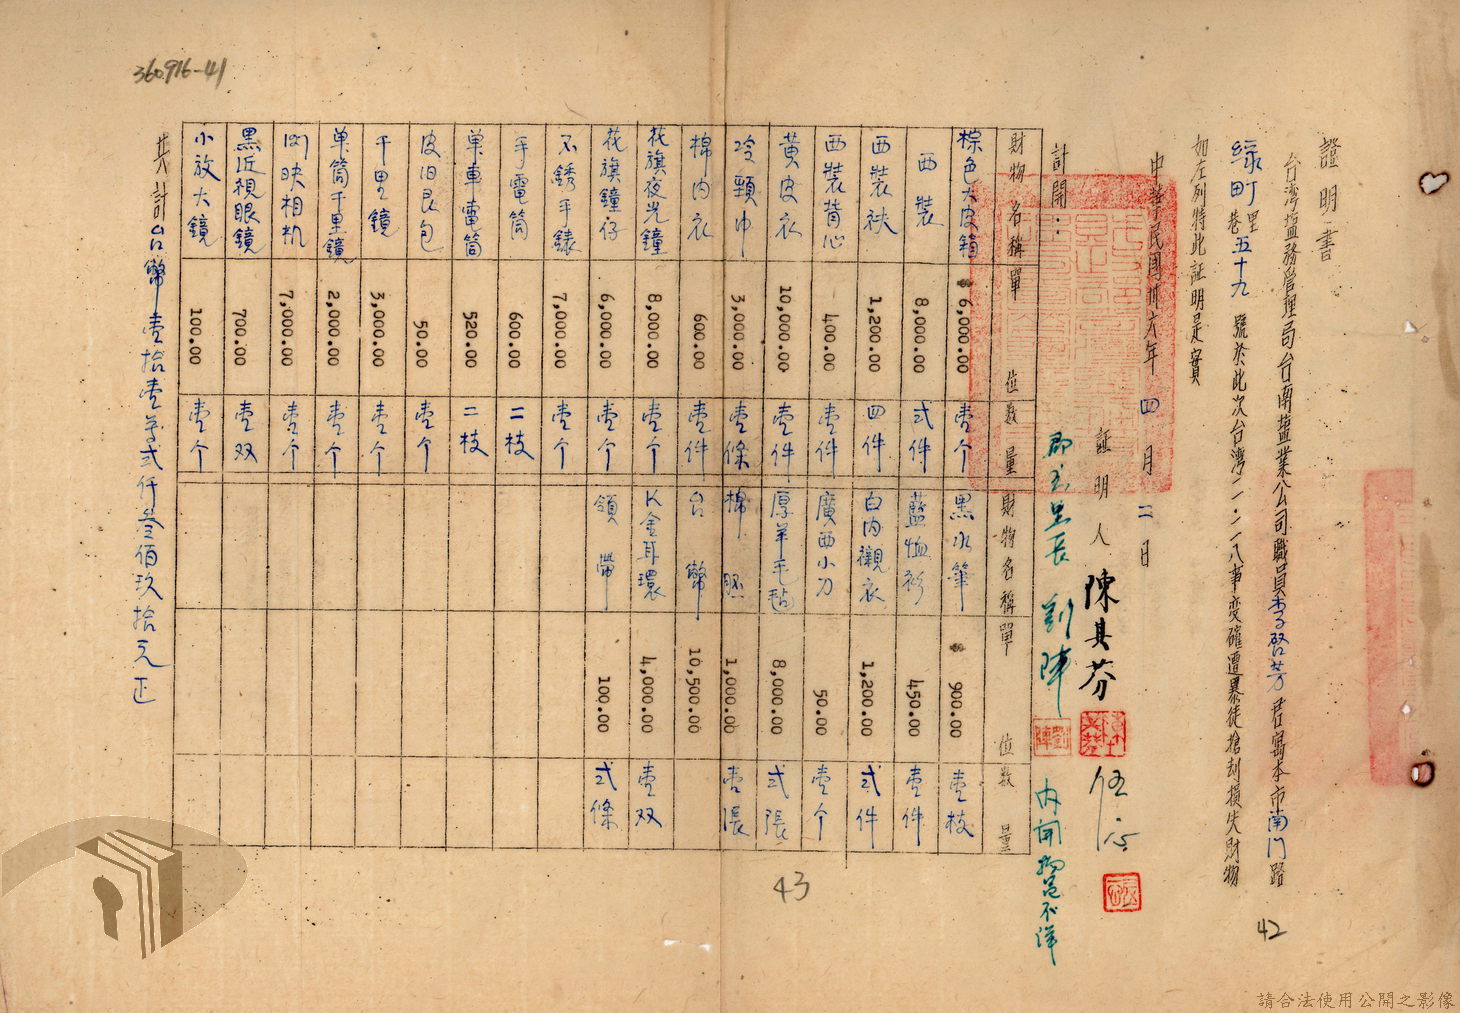 360916-41
證明書
台灣塩務管理局台南塩業公司職員李啓芳君寓本市南門路
綠町里巷五十九號於此次台灣二·二八事変確遭暴徒搶刦損失財物
如左列特此証明是實
中華民國卅六年四月二日
証明人 陳其芬 伍
郡王里長 劉陣
內開物品不詳
計開：
財物名稱 單位 數量 財物名稱 單位 數量
棕色大皮箱 $ 6,000.00 壹个 黑水筆 $ 900.00 壹枝
西裝 8,000.00 弍件 藍恤衫 450.00 壹件
西裝袂 1,200.00 四件 白內襯衣 1,200.00 弍件
西裝背心 400.00 壹件 廣西小刀 50.00 壹个
黃皮衣 10,000.00 壹件 厚羊毛毡 8,000.00 弍張
冷頸巾 3,000.00 壹條 棉胚 1,000.00 壹張
棉內衣 600.00 壹件 台幣 10,500.00
花旗夜光鐘 8,000.00 壹个 K金耳環 4,000.00 壹双
花旗鐘仔 6,000.00 壹个 領帶 100.00 弍條
不銹手錶 7,000.00 壹个
手電筒 600.00 二枝
單車電筒 520.00 二枝
皮旧艮包 50.00 壹个
千里鏡 3,000.00 壹个
單筒千里鏡 2,000.00 壹个
127映相机 7,000.00 壹个
黑近視眼鏡 700.00 壹双
小放大鏡 100.00 壹个
共計台幣壹拾壹萬弍仟叁佰玖拾元正
42
43
請合法使用公開之影像